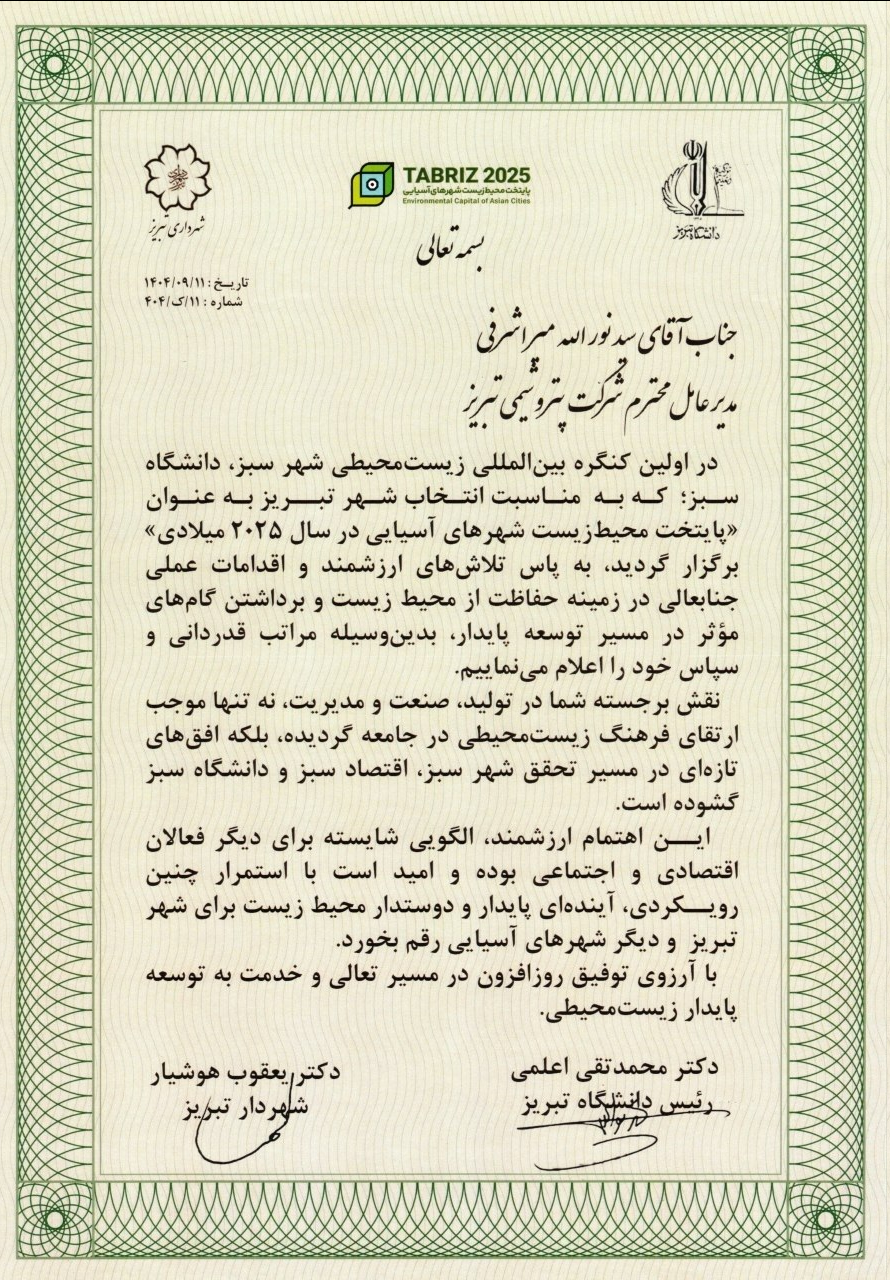 دانشگاه تبریز
TABRIZ 2025
پایتخت محیط‌زیست شهرهای آسیایی
Environmental Capital of Asian Cities
شهرداری تبریز
بسمه تعالی
تاریـخ : ۱۴۰۴/۰۹/۱۱
شماره : ۱۱/ک/۴۰۴
جناب آقای سید نورالله میراشرفی
مدیرعامل محترم شرکت پتروشیمی تبریز
در اولین کنگره بین‌المللی زیست‌محیطی شهر سبز، دانشگاه
سـبز؛ کـه بـه مناسبت انتخاب شـهر تبـریز بـه عنـوان
«پایتخت محیط‌زیست شهرهای آسیایی در سال ۲۰۲۵ میلادی»
برگزار گردید، به پاس تلاش‌های ارزشمند و اقدامات عملی
جنابعالی در زمینه حفاظت از محیط زیست و برداشتن گام‌های
مؤثر در مسیر توسعه پایدار، بدین‌وسیله مراتب قدردانی و
سپاس خود را اعلام می‌نماییم.
نقش برجسته شما در تولید، صنعت و مدیریت، نه تنها موجب
ارتقای فرهنگ زیست‌محیطی در جامعه گردیده، بلکه افق‌های
تازه‌ای در مسیر تحقق شهر سبز، اقتصاد سبز و دانشگاه سبز
گشوده است.
ایـن اهتمام ارزشمند، الگویی شایسته برای دیگر فعالان
اقتصادی و اجتماعی بوده و امید است با استمرار چنین
رویـکردی، آینده‌ای پایدار و دوستدار محیط زیست برای شهر
تبریز و دیگر شهرهای آسیایی رقم بخورد.
با آرزوی توفیق روزافزون در مسیر تعالی و خدمت به توسعه
پایدار زیست‌محیطی.
دکتر محمدتقی اعلمی
رئیس دانشگاه تبریز
دکتر یعقوب هوشیار
شهردار تبریز